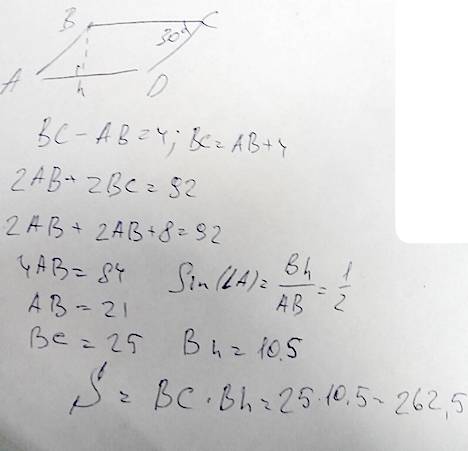 B C
30°
A h D
BC - AB = 4; BC = AB + 4
2AB + 2BC = 92
2AB + 2AB + 8 = 92
4AB = 84
AB = 21
BC = 25
Sin(∠A) = Bh/AB = 1/2
Bh = 10.5
S = BC · Bh = 25 · 10.5 = 262,5